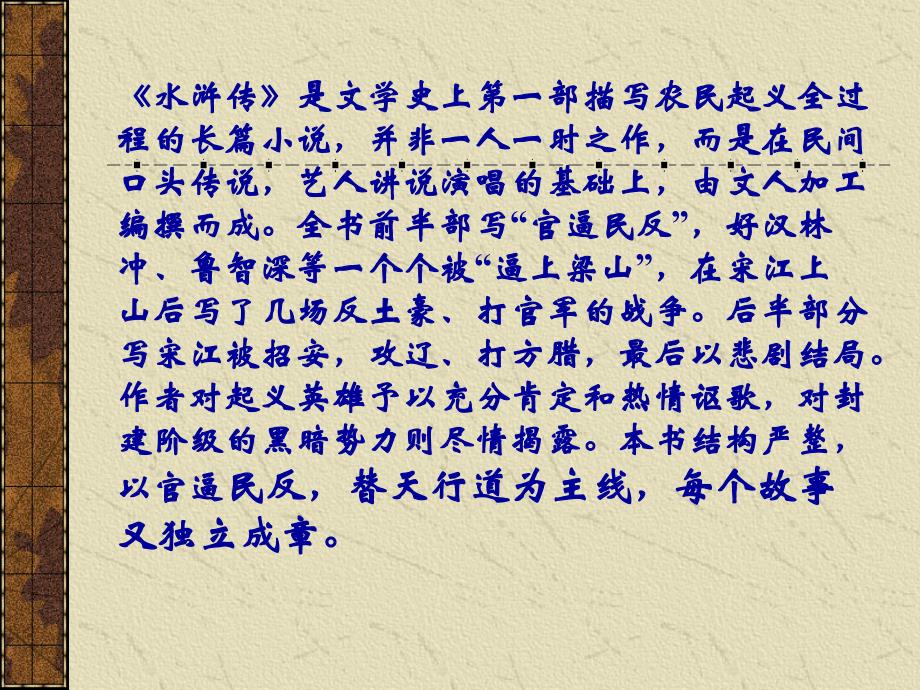 《水浒传》是文学史上第一部描写农民起义全过
程的长篇小说，并非一人一时之作，而是在民间
口头传说，艺人讲说演唱的基础上，由文人加工
编撰而成。全书前半部写“官逼民反”，好汉林
冲、鲁智深等一个个被“逼上梁山”，在宋江上
山后写了几场反土豪、打官军的战争。后半部分
写宋江被招安，攻辽、打方腊，最后以悲剧结局。
作者对起义英雄予以充分肯定和热情讴歌，对封
建阶级的黑暗势力则尽情揭露。本书结构严整，
以官逼民反，替天行道为主线，每个故事
又独立成章。